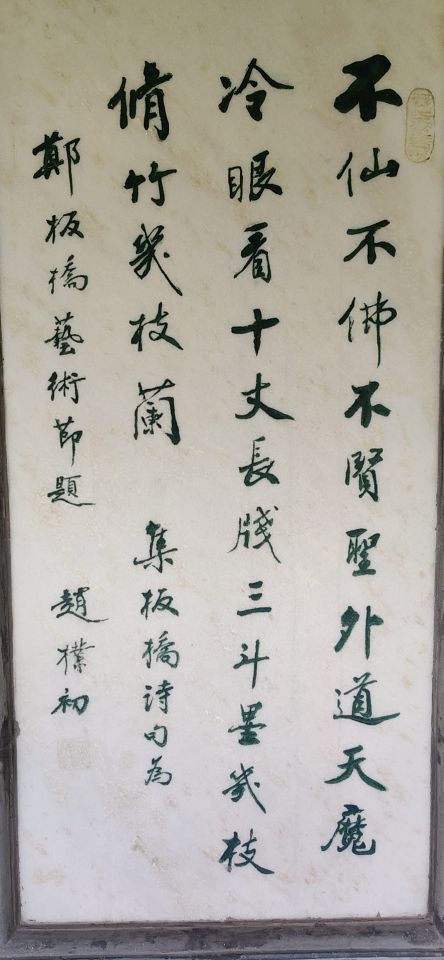 不仙不佛不賢聖外道天魔
冷眼看十丈長牋三斗墨幾枝
脩竹幾枝蘭 集板橋诗句為
鄭板橋藝術節題 趙樸初